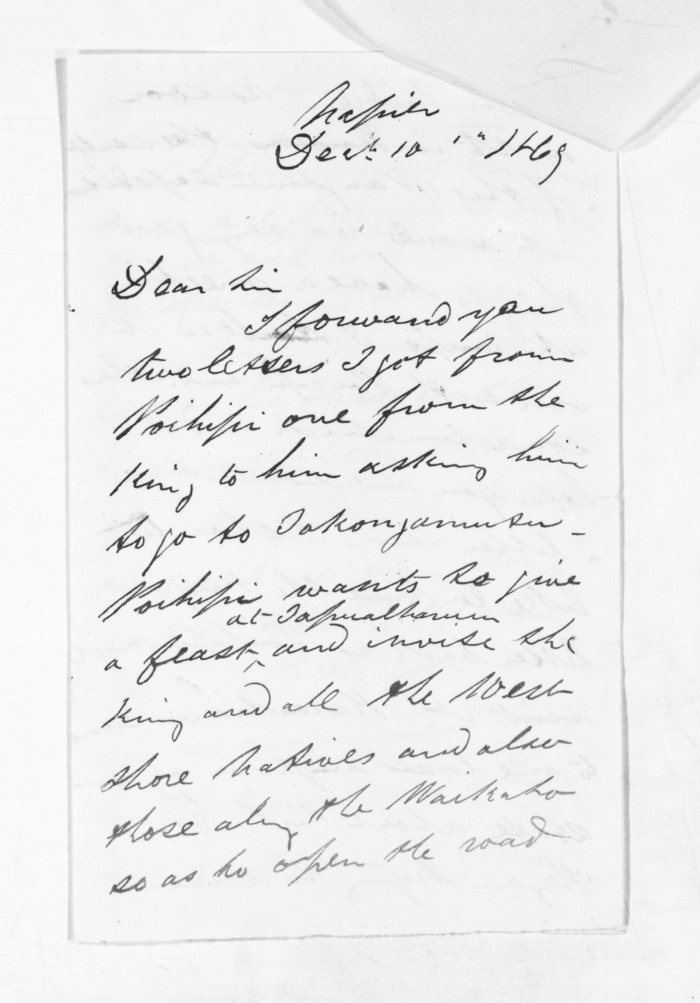 Napier
Decbr 10th 1869
Dear Sir
I forward you
two letters I got from
Poihipi one from the
King to him asking him
to go to Tokangamutu -
Poihipi wants to give
at Tapuaeharuru
a feast, and invite the
King and all the West
shore Natives and also
those along the Waikato
so as to open the road